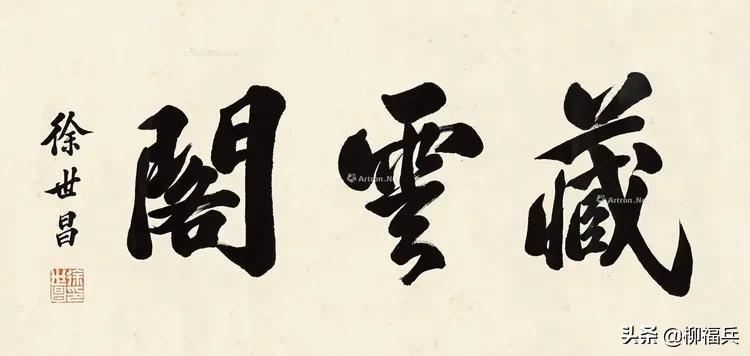 藏雲閣
徐世昌
徐世昌印
Artron.Net
Artron.Net
Artron.Net
头条 @柳福兵